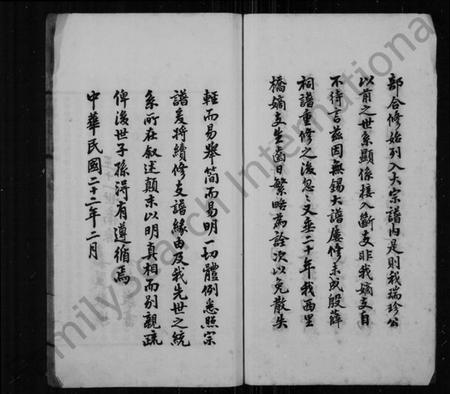 部合修始列入大宗譜內是則我瑞珍公
以前之世系顯係接入斷支非我嫡支自
不待言茲因無錫大譜屢修未成殷薛
祠譜重修之後忽忽又廿二十年我西里
橋嫡支生齒日繁略為詮次以免散失
輕而易舉簡而易明一切體例悉照宗
譜爰將續修支譜緣由及我先世之統
系所在敘述顛末以明真相而別親疏
俾後世子孫得有遵循焉
中華民國二十二年二月
milySearch International